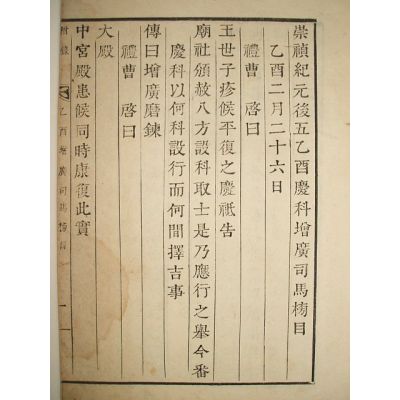 崇禎紀元後五乙酉慶科增廣司馬榜目
乙酉二月二十六日
禮曹 啓曰
王世子疹候平復之慶祗告
廟社頒赦八方設科取士是乃應行之舉今番
慶科以何科設行而何間擇吉事
傳曰增廣磨鍊
禮曹 啓曰
大殿
中宮殿患候同時康復此實
附錄
乙酉增廣司馬榜目
一